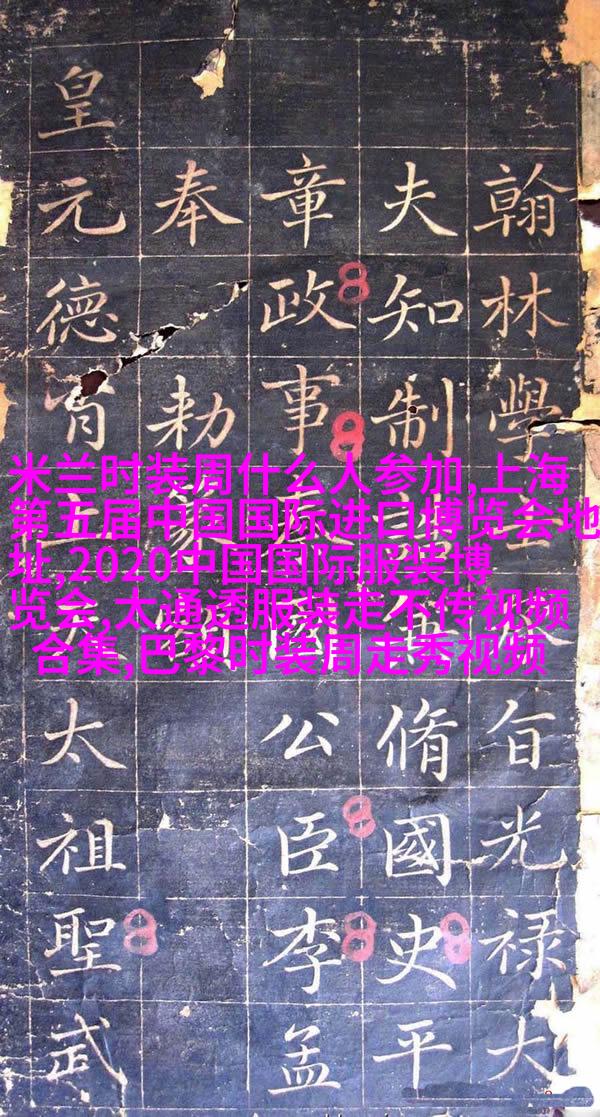 翰林學旨光禄大
夫知制脩國史平
章政事國公臣李孟
奉勅
皇元德太祖聖武
米兰时装周什么人参加,上海
第五届中国国际进口博览会地
址,2020中国国际服装博
览会,太通透服装走不传视频
合集,巴黎时装周走秀视频